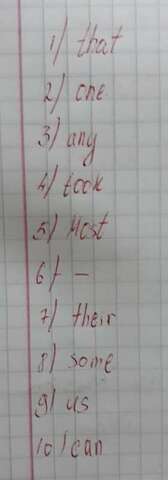 1) that
2) one
3) any
4) took
5) Most
6) –
7) their
8) some
9) us
10) can